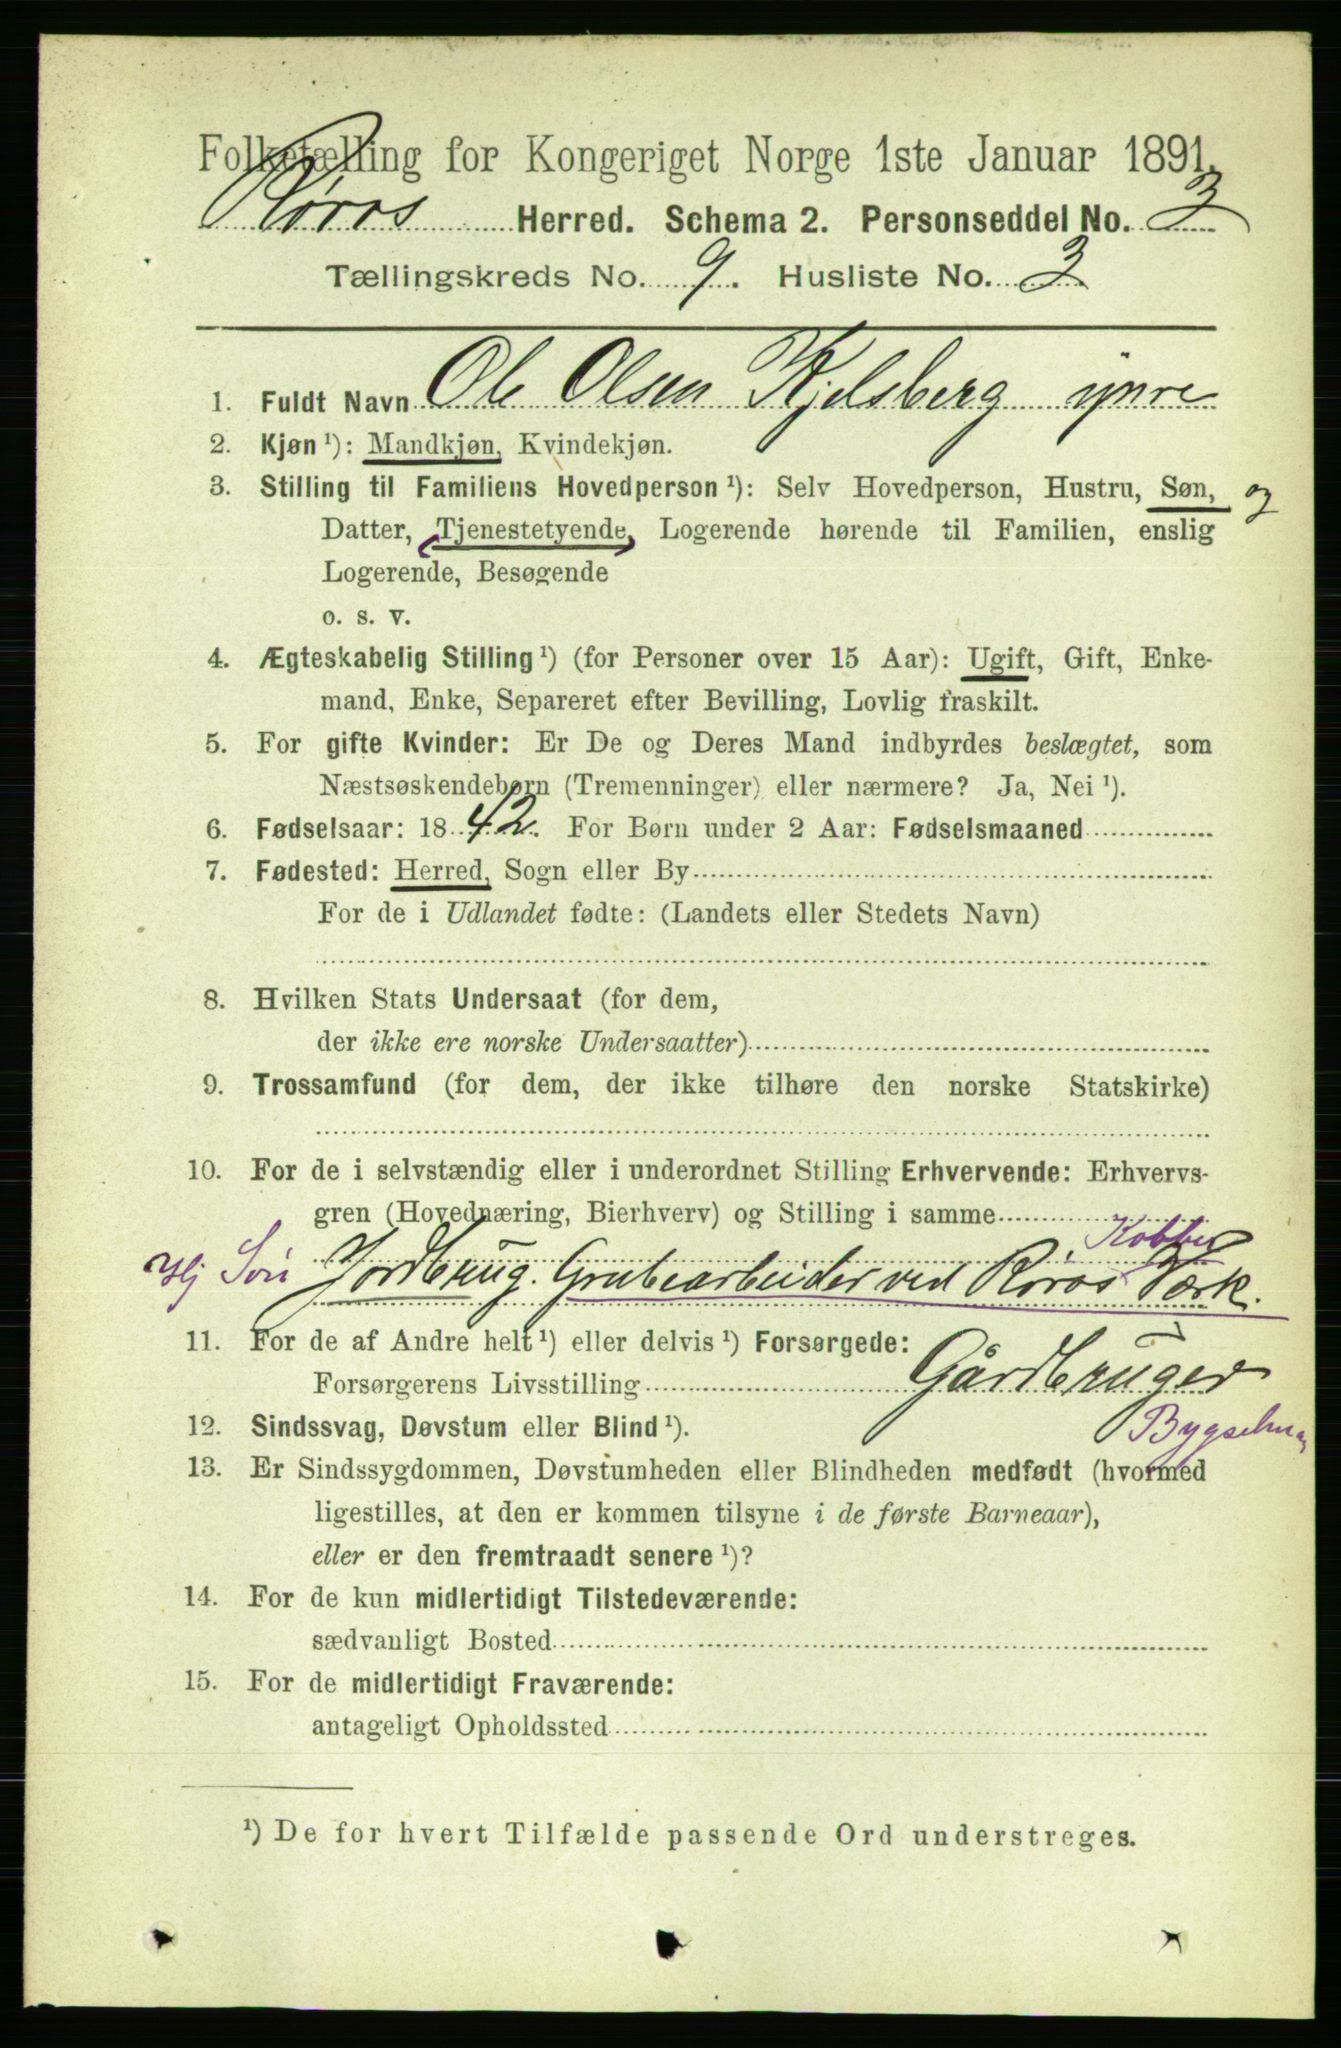 Folketælling for Kongeriget Norge 1ste Januar 1891.
Røros Herred. Schema 2. Personseddel No. 3
Tællingskreds No. 9. Husliste No. 3
1. Fuldt Navn Ole Olsen Kjelsberg ÿnre
2. Kjøn ¹): Mandkjøn, Kvindekjøn.
3. Stilling til Familiens Hovedperson ¹): Selv Hovedperson, Hustru, Søn, og
Datter, (Tjenestetyende,) Logerende hørende til Familien, enslig
Logerende, Besøgende
o. s. v.
4. Ægteskabelig Stilling ¹) (for Personer over 15 Aar): Ugift, Gift, Enke-
mand, Enke, Separeret efter Bevilling, Lovlig fraskilt.
5. For gifte Kvinder: Er De og Deres Mand indbyrdes beslægtet, som
Næstsøskendebørn (Tremenninger) eller nærmere? Ja, Nei ¹).
6. Fødselsaar: 1842. For Børn under 2 Aar: Fødselsmaaned
7. Fødested: Herred, Sogn eller By
For de i Udlandet fødte: (Landets eller Stedets Navn)
8. Hvilken Stats Undersaat (for dem,
der ikke ere norske Undersaatter)
9. Trossamfund (for dem, der ikke tilhøre den norske Statskirke)
10. For de i selvstændig eller i underordnet Stilling Erhvervende: Erhvervs-
gren (Hovednæring, Bierhverv) og Stilling i samme
Kobber
Hj Søn Jordbrug. Grubearbeider ved Røros Værk.
11. For de af Andre helt ¹) eller delvis ¹) Forsørgede:
Forsørgerens Livsstilling Gårdbruger
12. Sindssvag, Døvstum eller Blind ¹).
Bygselm
13. Er Sindssygdommen, Døvstumheden eller Blindheden medfødt (hvormed
ligestilles, at den er kommen tilsyne i de første Barneaar),
eller er den fremtraadt senere ¹)?
14. For de kun midlertidigt Tilstedeværende:
sædvanligt Bosted
15. For de midlertidigt Fraværende:
antageligt Opholdssted
¹) De for hvert Tilfælde passende Ord understreges.